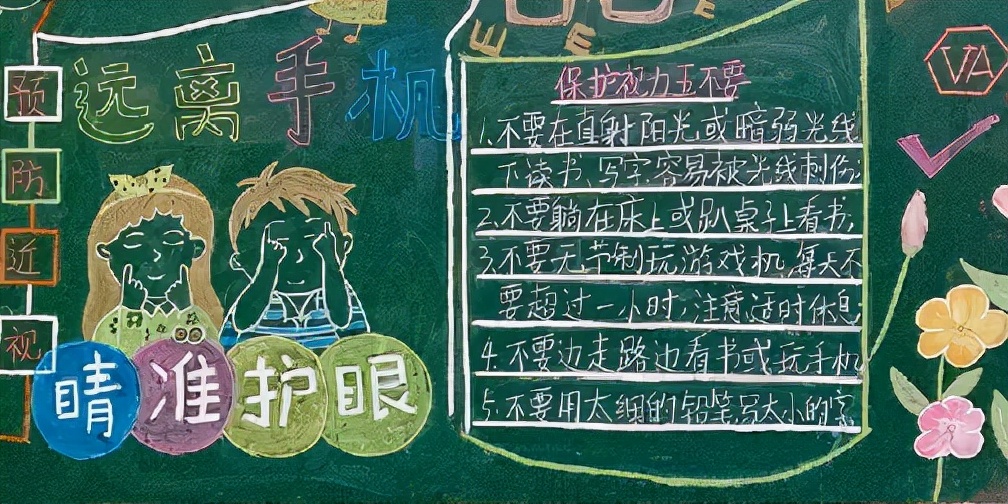 预防近视
远离手机
睛准护眼
保护视力五不要
1.不要在直射阳光或暗弱光线
下读书、写字容易被光线刺伤
2.不要躺在床上或趴桌子上看书,
3.不要无节制玩游戏机,每天不
要超过一小时,注意适时休息
4.不要边走路边看书或玩手机
5.不要用太细的铅笔写太小的字
VA